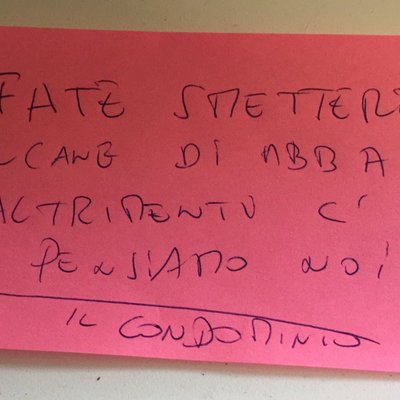 FATE SMETTERE
IL CANE DI ABBA
ALTRIMENTU C'
PENSIAMO NOI
IL CONDOMINIO